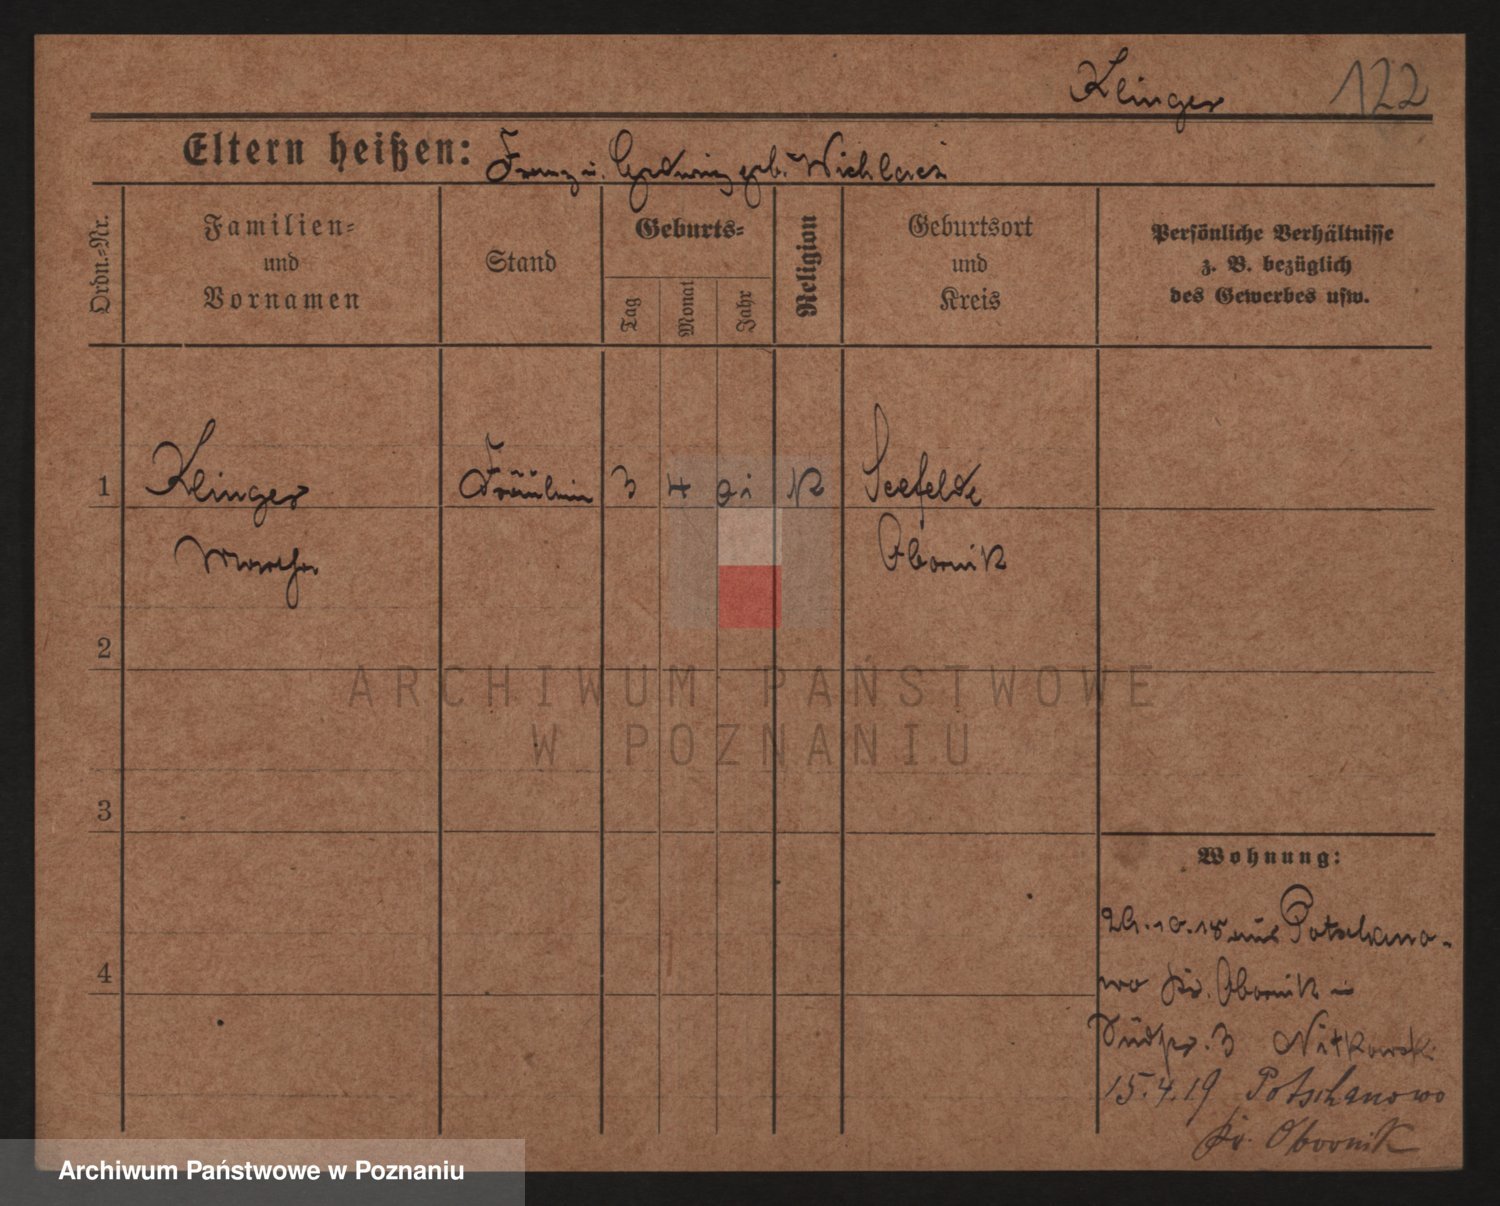 Klinger 122
Eltern heißen: Franz u. Hedwig geb. Wichlacz
Ordn.-Nr.
Familien-
und
Vornamen
Stand
Geburts-
Tag
Monat
Jahr
Religion
Geburtsort
und
Kreis
Persönliche Verhältnisse
z. B. bezüglich
des Gewerbes usw.
1 Klinger Fräulein 3 4 K Seefelde
Martha Obornik
2
3
4
Wohnung:
10. 18 aus Potschano-
wo Kr. Obornik
Südstr. 3 Nitkowski
15.4.19 Potschanowo
Kr. Obornik
ARCHIWUM PAŃSTWOWE
W POZNANIU
Archiwum Państwowe w Poznaniu